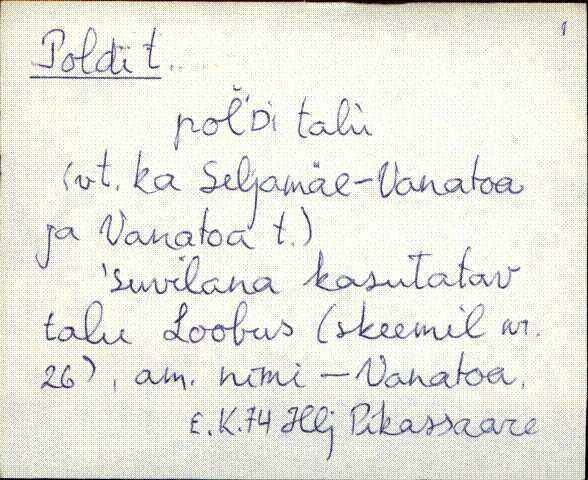 1
Poldi t.
pol̆'Di talu
(vt. ka Seljamäe-Vanatoa
ja Vanatoa t.)
'suvilana kasutatav
talu Loobus (skeemil nr.
26), am. nimi – Vanatoa.
E.K.74 Hlj Pikassaare